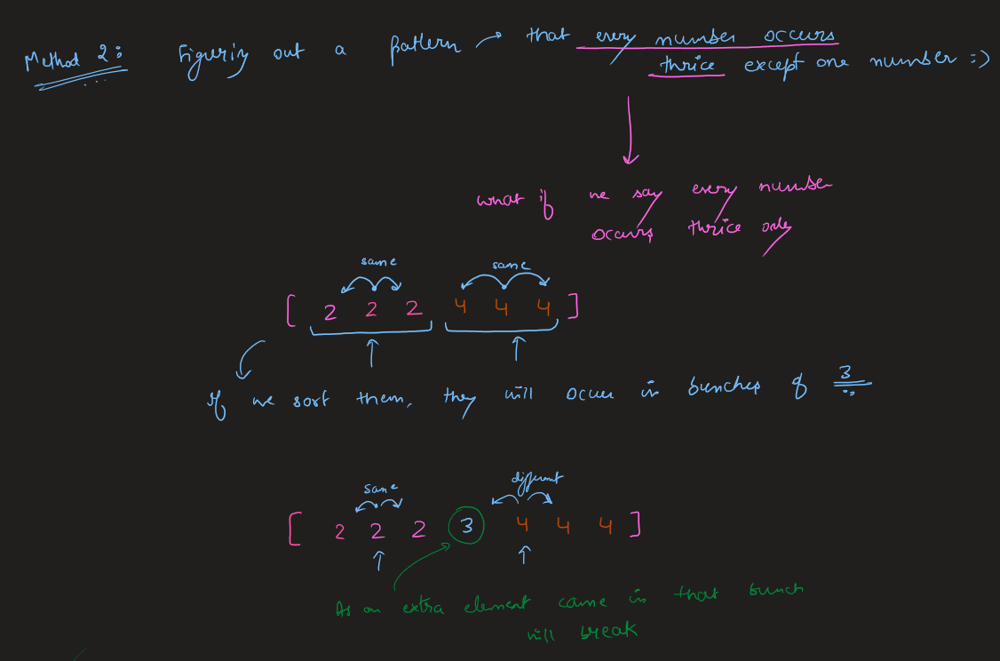 Method 2: Figuring out a pattern → that every number occurs
thrice except one number :)
what if we say every number
occurs thrice only
same same
[ 2 2 2 4 4 4 ]
If we sort them, they will occur in bunches of 3
same different
[ 2 2 2 3 4 4 4 ]
As an extra element came in that bunch
will break